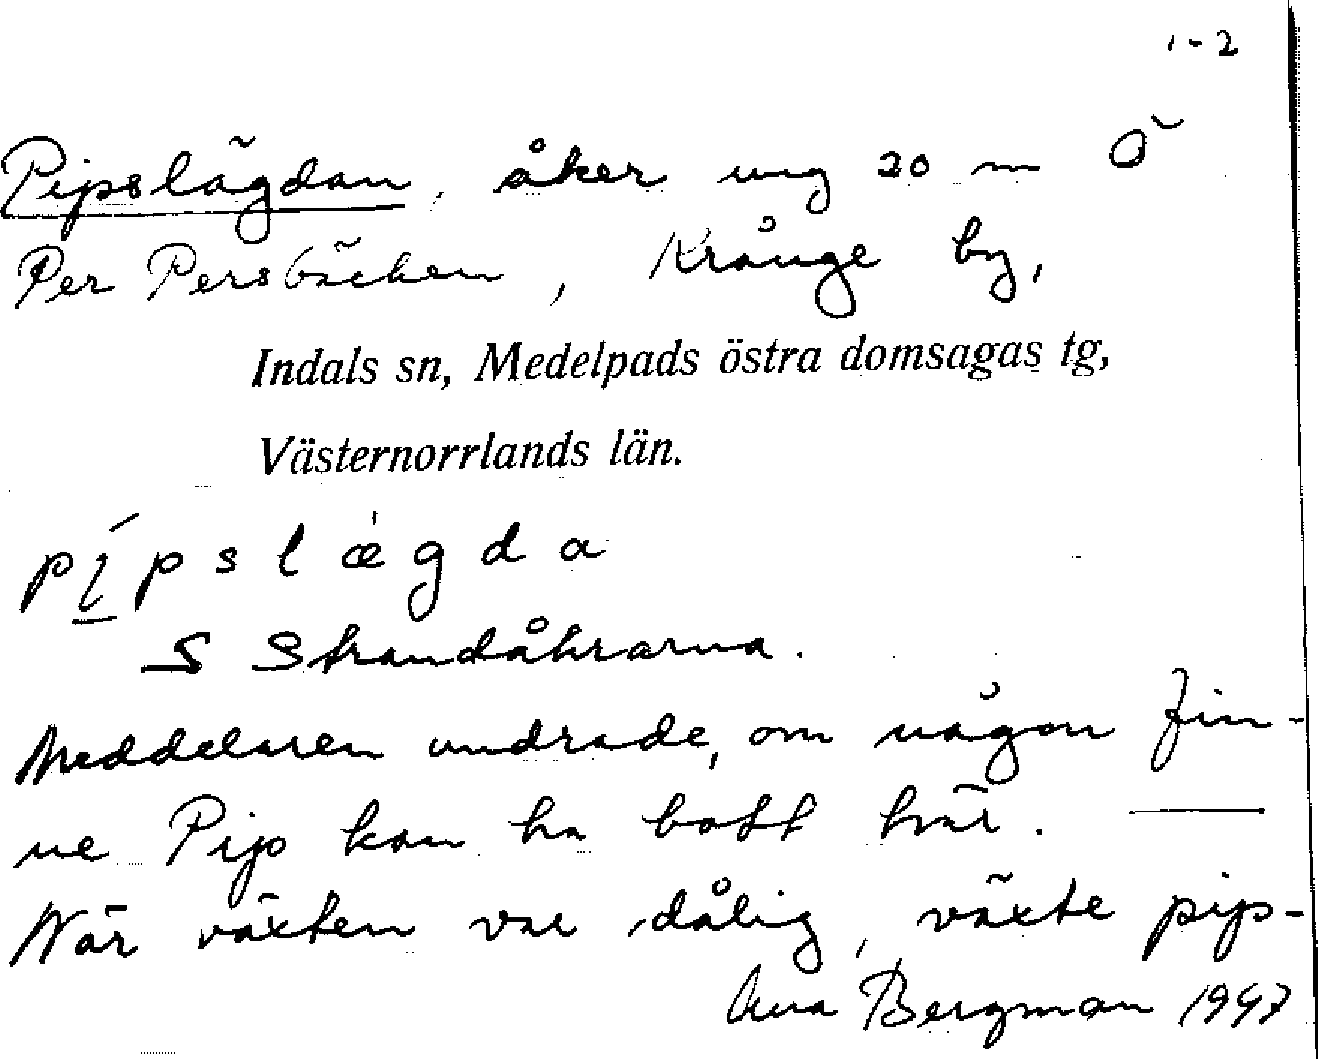 1-2
Pipslägdan, åker ung 20 m Ö
Per Persbäcken, Krånge by,
Indals sn, Medelpads östra domsagas tg,
Västernorrlands län.
pípslægda
S Strandåkrarna.
Meddelaren undrade, om någon Fin-
ne Pip kan ha bott här. —
När växten var dålig, växte pip-
Bergman 1947